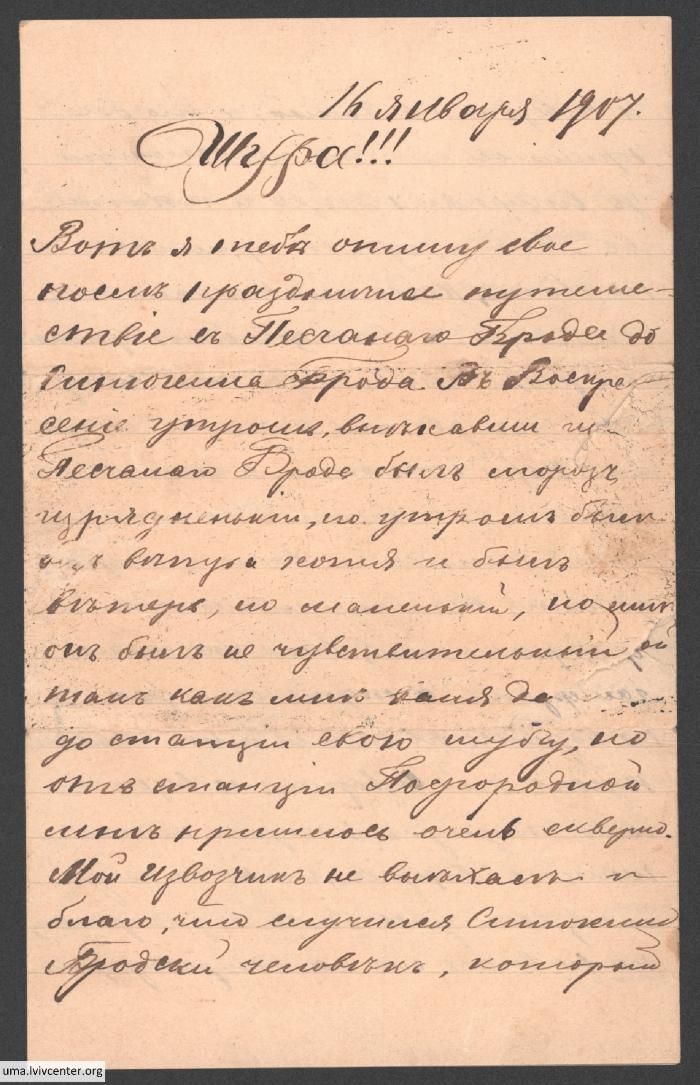 16 января 1907.
Шура!!!
Вотъ я тебѣ опишу свое
послѣ праздничное путеше-
ствіе съ Песчанаго Брода до
Синюхина Брода. Въ Воскре
сеніе утромъ, выѣхавши из
Песчанаго Брода былъ морозъ
изрядненькій, но утромъ был
хотя и былъ
вѣтеръ, но маленькій, но мнѣ
онъ былъ не чувствительный
такъ какъ мнѣ Ваня да
до станціи свою шубу, но
отъ станціи Подгородной
мнѣ пришлось очень скверно.
Мой извозчикъ не выѣхалъ и
благо, что случился Синюхино
Бродскій человѣкъ, который
uma.lvivcenter.org